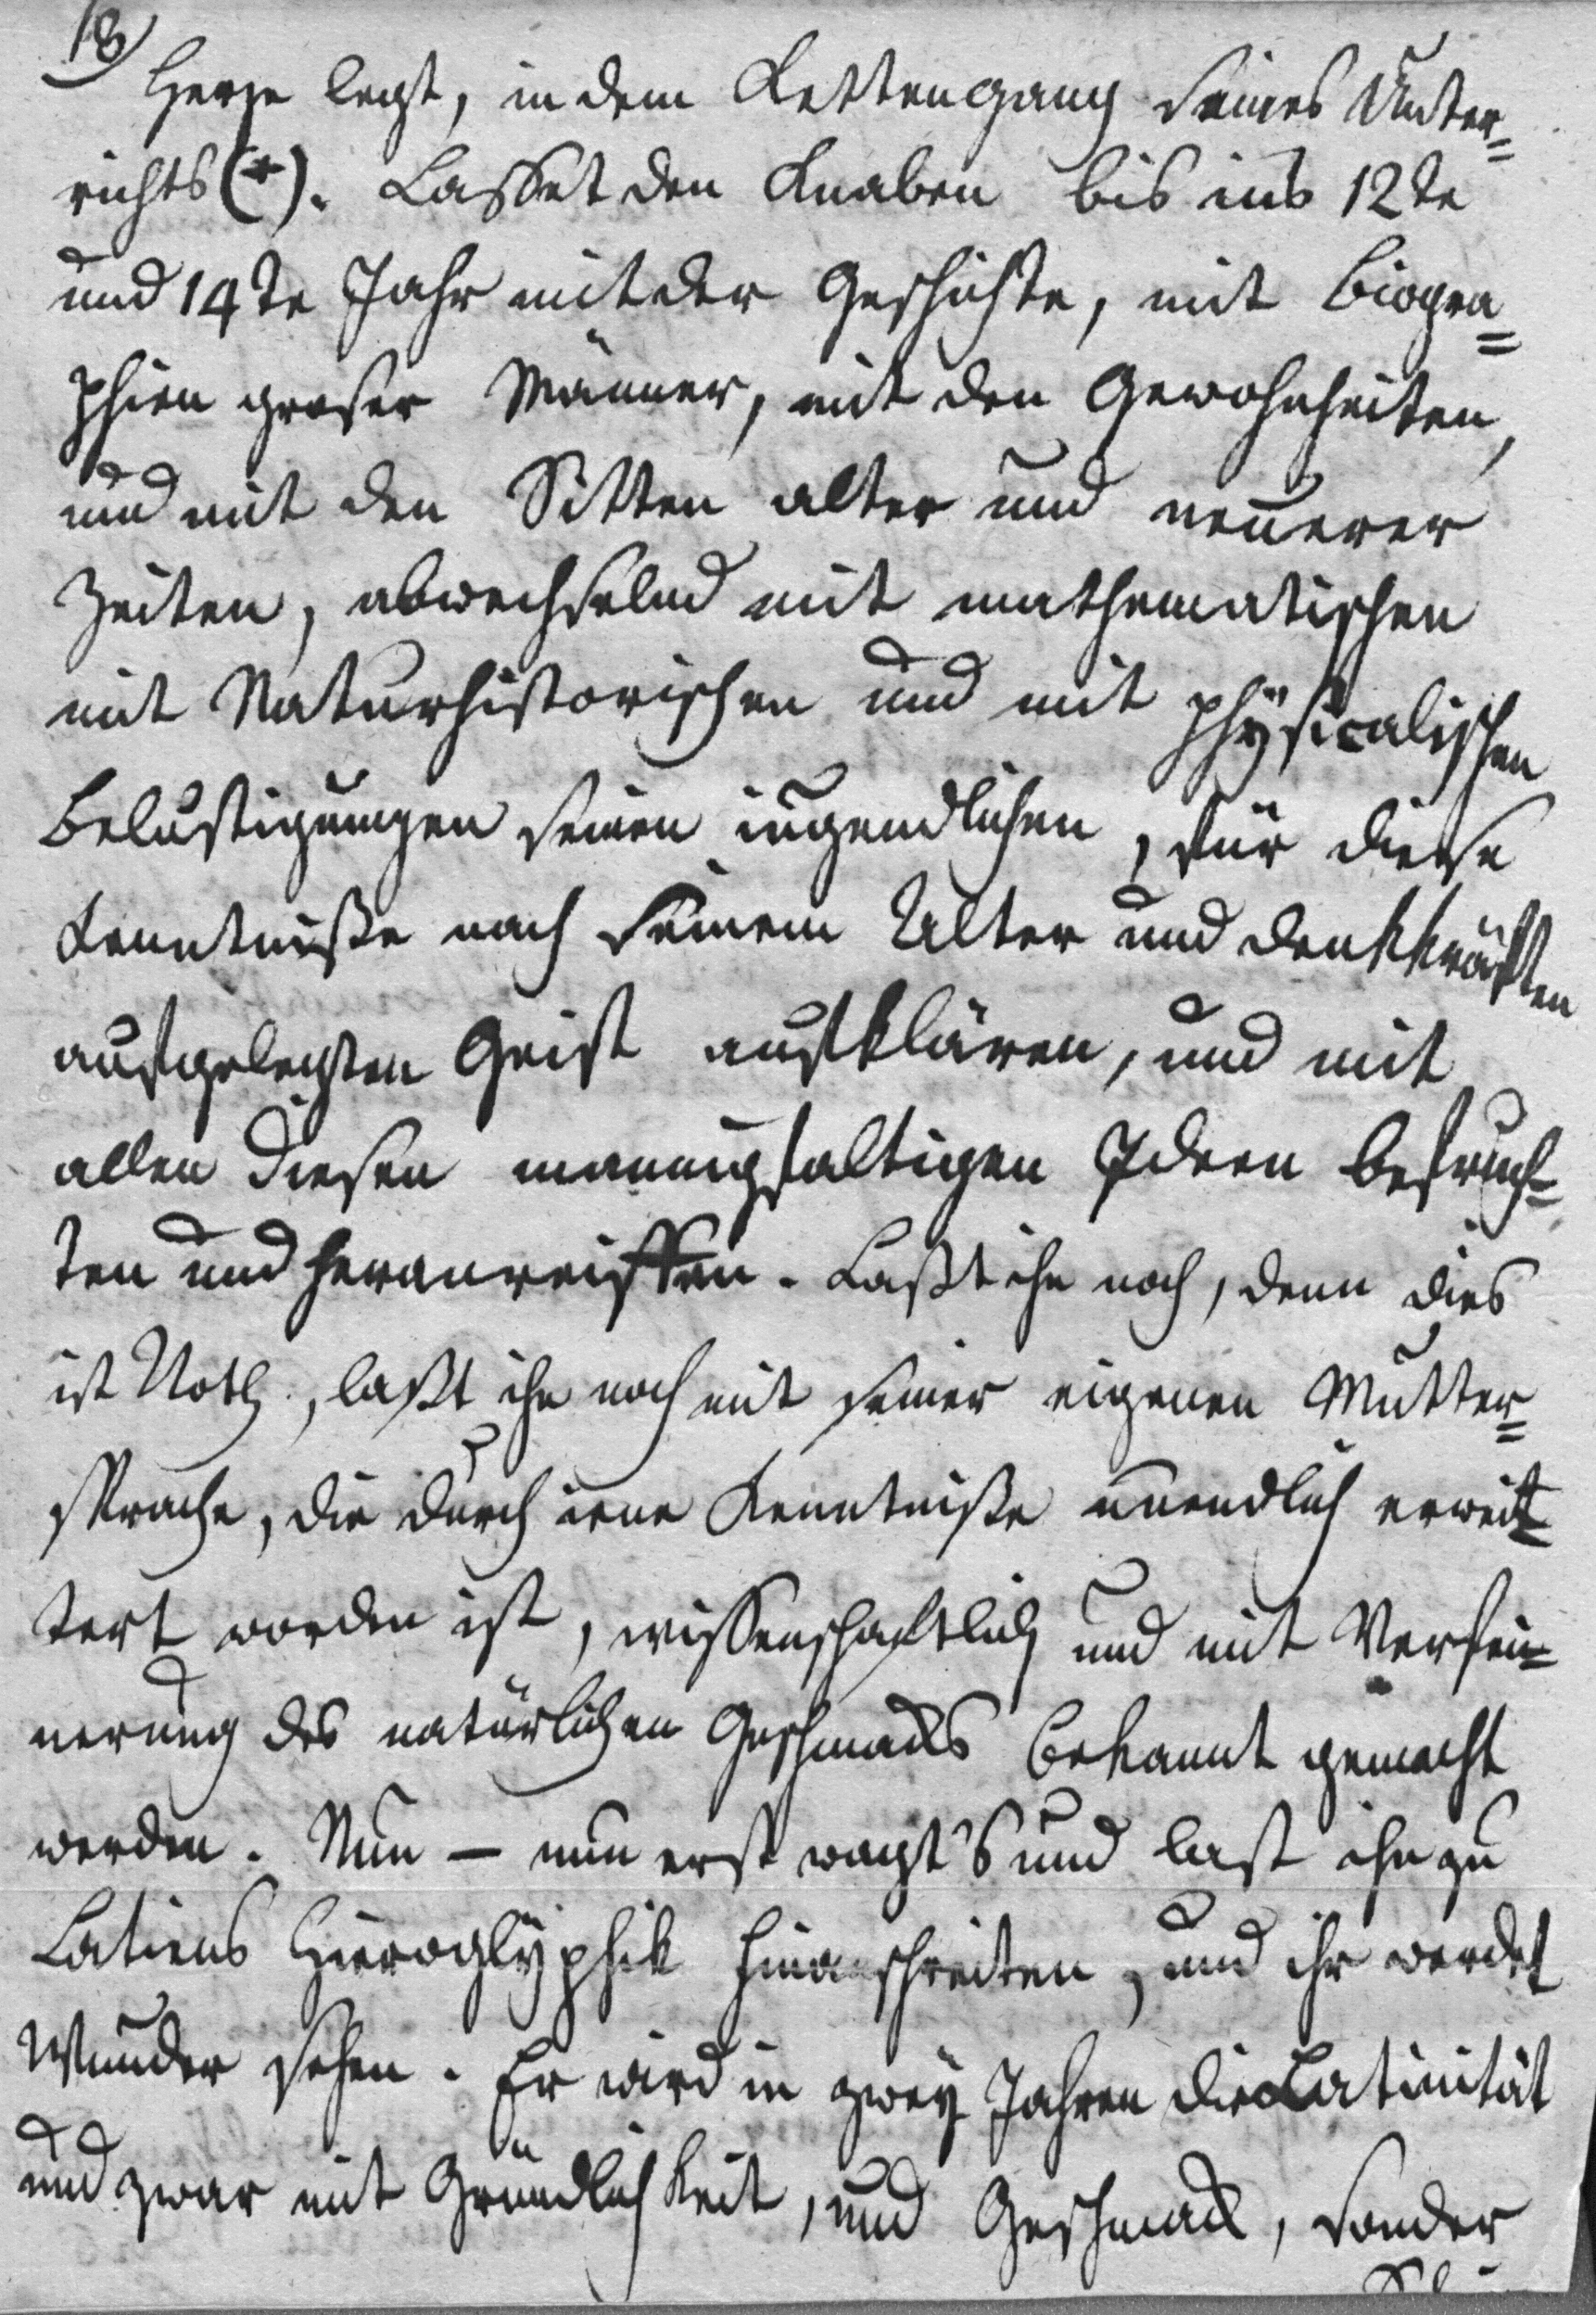 18
Herze legt, in dem Kettengang seines Unter=
richts(*). Lasset den Knaben bis ins 12te
und 14te Jahr mit der Geschichte, mit Biogra=
phien groser Männer, mit den Gewohnheiten,
und mit den Sitten alter und neuerer
Zeiten, abwechselnd mit mathematischen
mit Naturhistorischen und mit physicalischen
Belustigungen seinen iugendlichen, für diese
Kenntniße nach seinem Alter und Denkkräften
aufgelegten Geist aufklären, und mit
allen diesen mannigfaltigen Ideen befruch=
ten und heranreiffen. Laßt ihn noch, denn dies
ist Noth, laßt ihn noch mit seiner eigenen Mutter=
sprache, die durch iene Kenntniße unendlich erweit=
tert worden ist, wissenschaftlich und mit Verfei=
nerung des natürlichen Geschmacks bekannt gemacht
werden. Nun – nun erst wagt's und last ihn zu
Latiens Hieroglyphik hinanschreiten, und ihr werdet
Wunder sehen. Er wird in zwey Jahren die Latinität
und zwar mit Gründlichkeit, und Geschmack, sonder